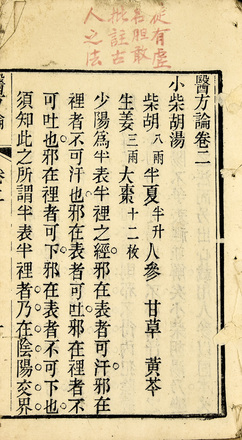 徒有虛
名胆敢
批註古
人之法
醫方論卷二
小柴胡湯
柴胡八兩 半夏半升 人參 甘草 黃芩
生姜三兩 大棗十二枚
少陽為半表半裡之經。邪在表者可汗。邪在
裡者不可汗也。邪在表者可吐。邪在裡者不
可吐也。邪在裡者可下。邪在表者不可下也。
須知此之所謂半表半裡者。乃在陰陽交界